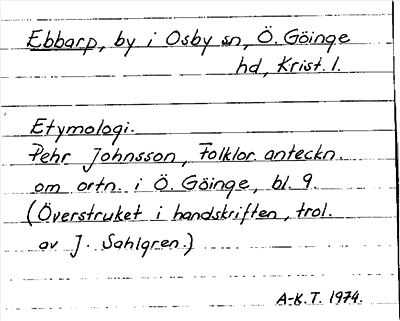 Ebbarp, by i Osby sn, Ö. Göinge
hd, Krist. l.
Etymologi.
Pehr Johnsson, Folklor. anteckn.
om ortn. i Ö. Göinge, bl. 9.
(Överstruket i handskriften, trol.
av J. Sahlgren.)
A-K.T. 1974.